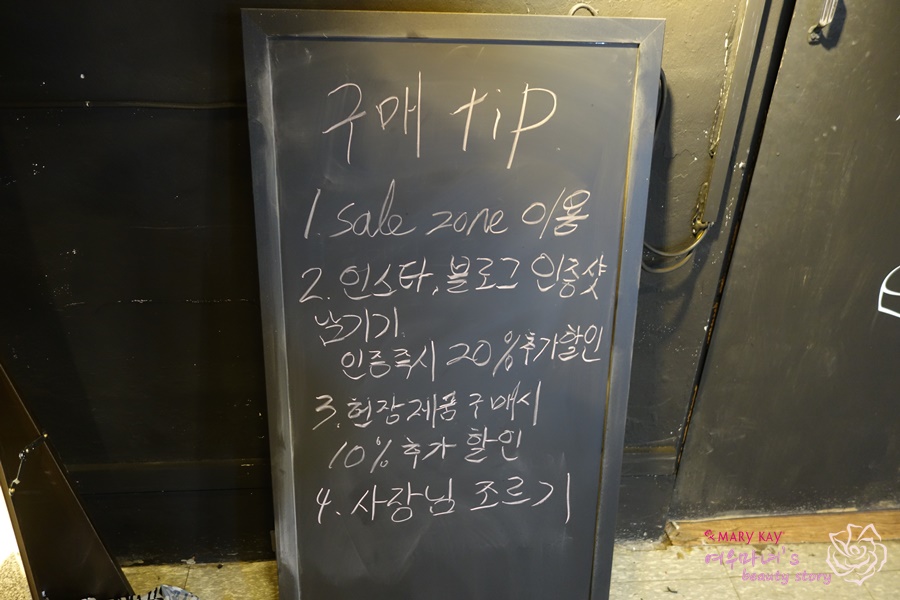 구매 tip
1. sale zone 이용
2. 인스타, 블로그 인증샷
남기기
인증즉시 20% 추가할인
3. 현장제품 구매시
10% 추가 할인
4. 사장님 조르기
MARY KAY
여우마녀's
beauty story